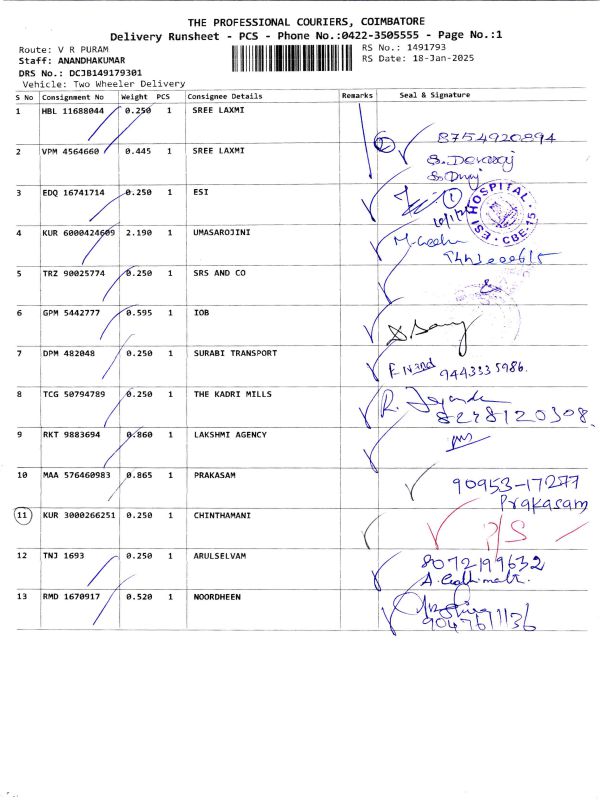 THE PROFESSIONAL COURIERS, COIMBATORE
Delivery Runsheet - PCS - Phone No.:0422-3505555 - Page No.:1
Route: V R PURAM
RS No.: 1491793
Staff: ANANDHAKUMAR
RS Date: 18-Jan-2025
DRS No.: DCJB149179301
Vehicle: Two Wheeler Delivery
S No Consignment No Weight PCS Consignee Details Remarks Seal & Signature
1 HBL 11688044 0.250 1 SREE LAXMI
8754920894
2 VPM 4564660 0.445 1 SREE LAXMI
S. Devaraj
3 EDQ 16741714 0.250 1 ESI
1
ESI HOSPITAL CBE-15
4 KUR 6000424609 2.190 1 UMASAROJINI
5 TRZ 90025774 0.250 1 SRS AND CO
6 GPM 5442777 0.595 1 IOB
7 DPM 482048 0.250 1 SURABI TRANSPORT
9443335986.
8 TCG 50794789 0.250 1 THE KADRI MILLS
8248120308.
9 RKT 9883694 0.860 1 LAKSHMI AGENCY
10 MAA 576460983 0.865 1 PRAKASAM
90953-17277
Prakasam
11 KUR 3000266251 0.250 1 CHINTHAMANI
P/S
12 TNJ 1693 0.250 1 ARULSELVAM
8072199632
13 RMD 1670917 0.520 1 NOORDHEEN
9047611136